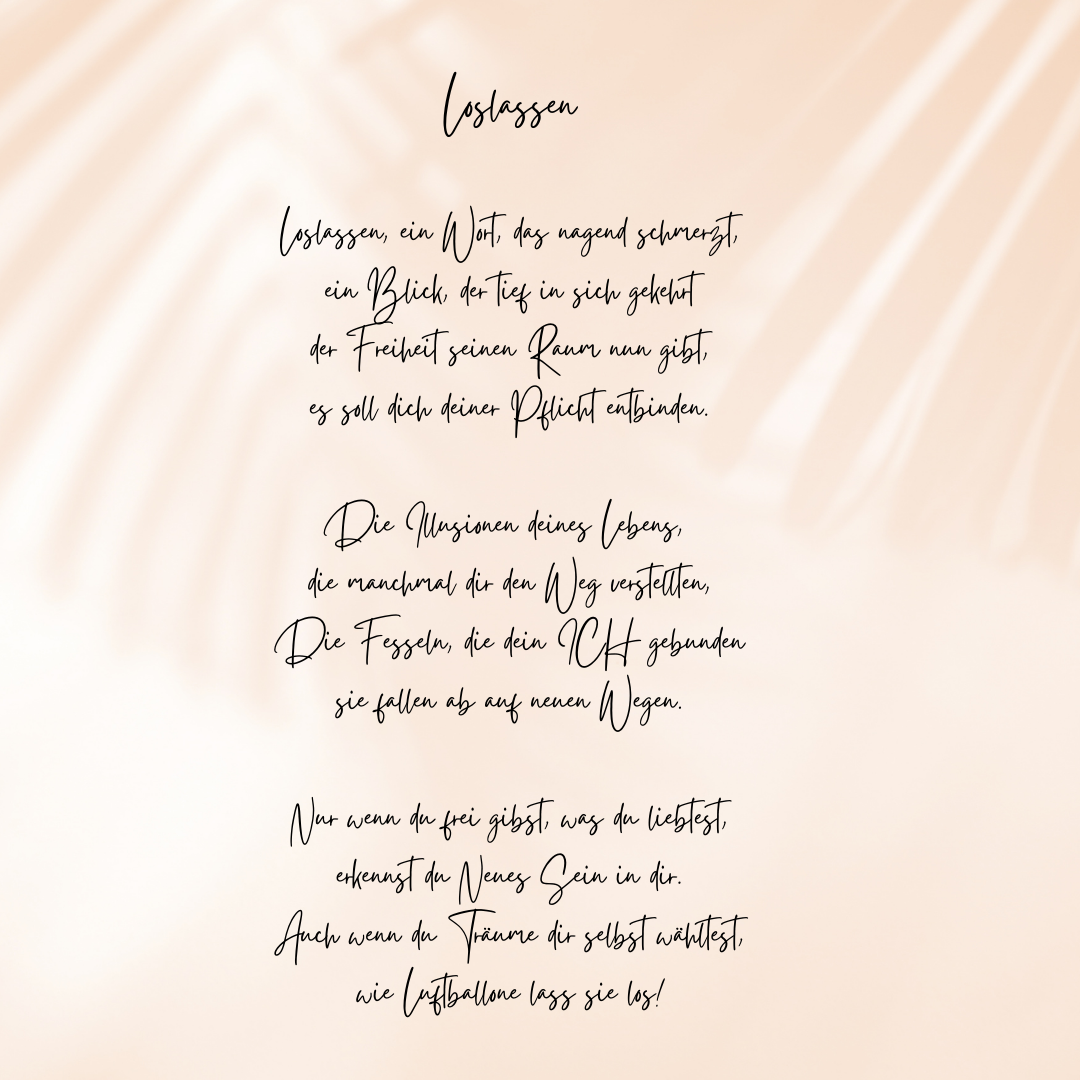 Loslassen
Loslassen, ein Wort, das nagend schmerzt,
ein Blick, der tief in sich gekehrt
der Freiheit seinen Raum nun gibt,
es soll dich deiner Pflicht entbinden.
Die Illusionen deines Lebens,
die manchmal dir den Weg verstellten,
Die Fesseln, die dein ICH gebunden
sie fallen ab auf neuen Wegen.
Nur wenn du frei gibst, was du liebtest,
erkennst du Neues Sein in dir.
Auch wenn du Träume dir selbst wähltest,
wie Luftballone lass sie los!